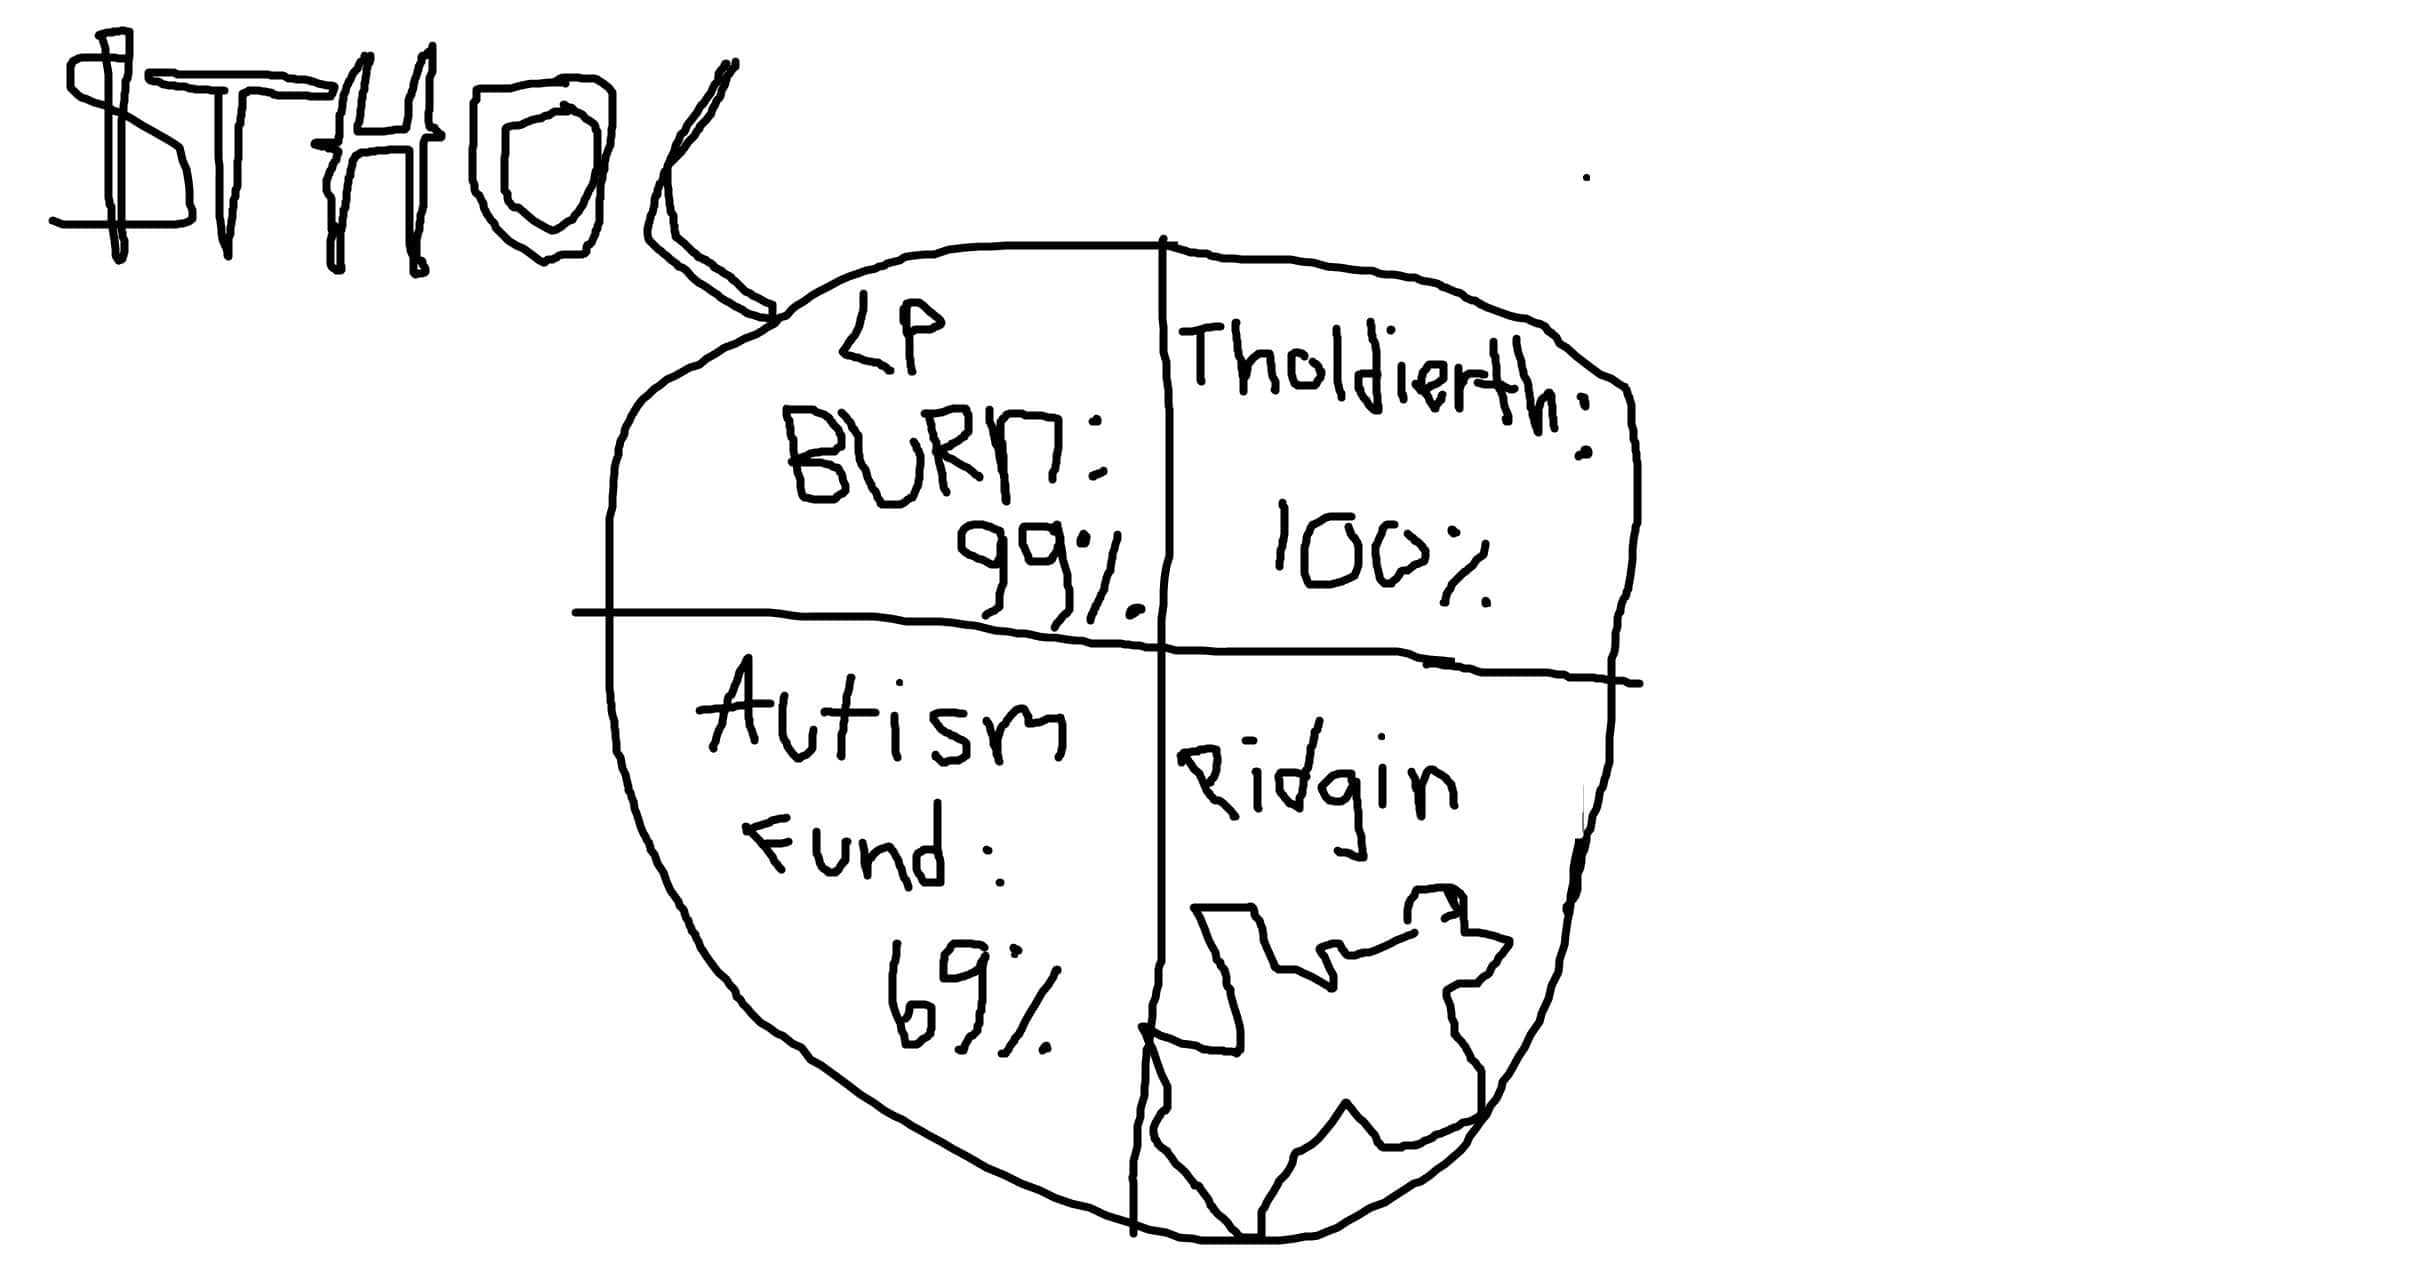 $THOL
LP
BURN:
99%
Tholdierth:
100%
Autism
Fund:
69%
Ridgin